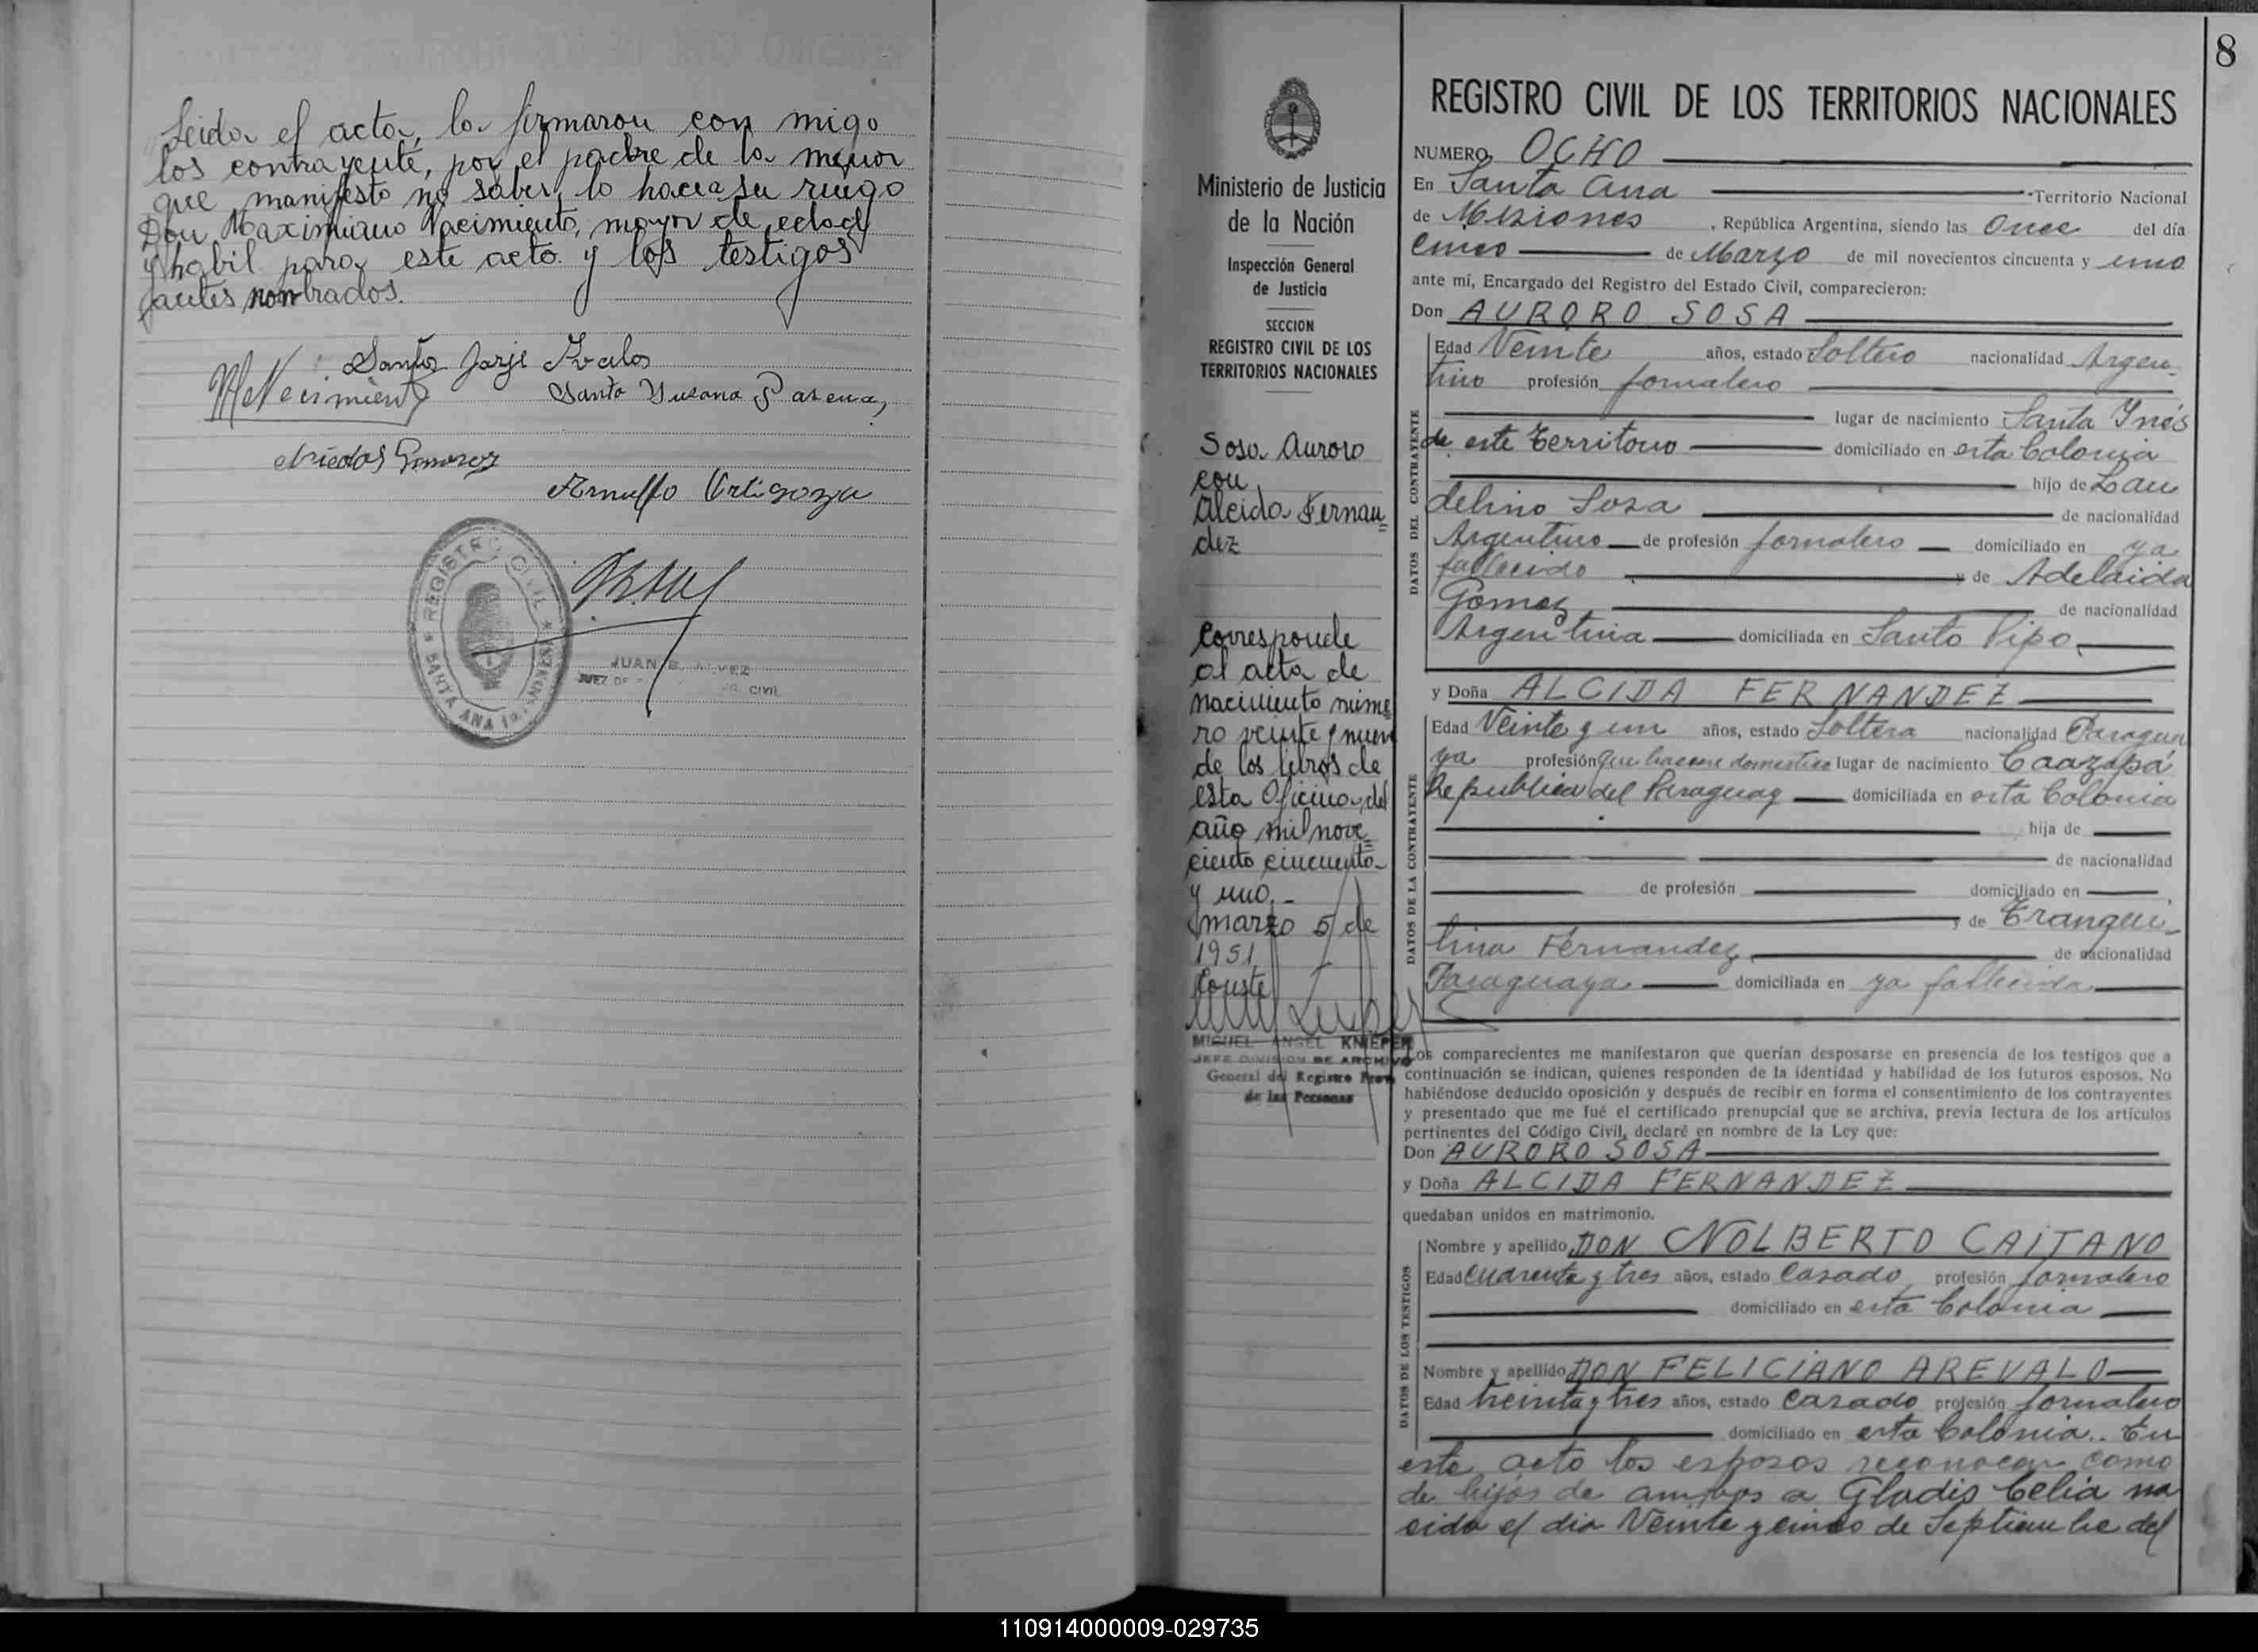 Leida el acta, la firmaron con migo
los contrayente, por el padre de la menor
que manifesto no saber, lo hacia su ruego
Don Maximiano Nacimiento, mayor de edad
y habil para este acto y los testigos
antes nombrados.
Santo Jorje Avalos
Santa Susana
Arnulfo Ortigoza
REGISTRO CIVIL
SANTA ANA
JUAN B. ALVEZ
JUEZ DE
CIVIL
8
Ministerio de Justicia
de la Nación
Inspección General
de Justicia
SECCION
REGISTRO CIVIL DE LOS
TERRITORIOS NACIONALES
Sosa Auroro
con
Alcida Fernan
dez
Corresponde
al acta de
nacimiento núme
ro veinte y nueve
de los libros de
esta Oficina, del
año mil nove
ciento cincuenta
y uno.-
marzo 5 de
1951
Conste
MIGUEL ANGEL KNIEPER
JEFE DIVISION DE ARCHIVO
General del Registro Prov.
de las Personas
REGISTRO CIVIL DE LOS TERRITORIOS NACIONALES
NUMERO OCHO
En Santa Ana Territorio Nacional
de Misiones, República Argentina, siendo las Once del día
Cinco de Marzo de mil novecientos cincuenta y uno
ante mí, Encargado del Registro del Estado Civil, comparecieron:
Don AURORO SOSA
DATOS DEL CONTRAYENTE
Edad Veinte años, estado Soltero nacionalidad Argen-
tino profesión jornalero
lugar de nacimiento Santa Inés
de este territorio domiciliado en esta Colonia
hijo de Lau
delino Sosa de nacionalidad
Argentino de profesión jornalero domiciliado en ya
fallecido y de Adelaida
Gomez de nacionalidad
Argentina domiciliada en Santo Pipo
y Doña ALCIDA FERNANDEZ
DATOS DE LA CONTRAYENTE
Edad Veinte y un años, estado Soltera nacionalidad Paragua
ya profesión Que haceres domestico lugar de nacimiento Caazapá
Republica del Paraguay domiciliada en esta Colonia
hija de
de nacionalidad
de profesión domiciliado en
y de Tranqui-
lina Fernandez de nacionalidad
Paraguaya domiciliada en ya fallecida
Los comparecientes me manifestaron que querían desposarse en presencia de los testigos que a
continuación se indican, quienes responden de la identidad y habilidad de los futuros esposos. No
habiéndose deducido oposición y después de recibir en forma el consentimiento de los contrayentes
y presentado que me fué el certificado prenupcial que se archiva, previa lectura de los artículos
pertinentes del Código Civil, declaré en nombre de la Ley que:
Don AURORO SOSA
y Doña ALCIDA FERNANDEZ
quedaban unidos en matrimonio.
DATOS DE LOS TESTIGOS
Nombre y apellido DON NOLBERTO CAITANO
Edad Cuarenta y tres años, estado Casado profesión jornalero
domiciliado en esta Colonia
Nombre y apellido DON FELICIANO AREVALO
Edad treinta y tres años, estado Casado profesión jornalero
domiciliado en esta Colonia. En
este acto los esposos reconocen como
de hijos de ambos a Gladis Celia na
cida el dia Veinte y cinco de Septiembre del
110914000009-029735